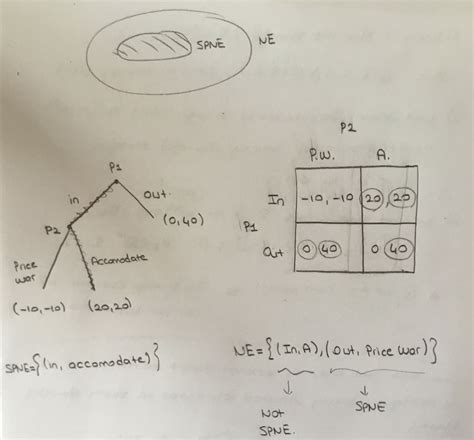 SPNE NE
P2
P.W. A.
P1
in Out.
In -10, -10 20, 20
P2 (0,40)
P1
Price war Accomodate
Out 0 40 0 40
(-10,-10) (20,20)
SPNE={(in, accomodate)}
NE={(In,A),(Out, Price War)}
Not SPNE.
SPNE